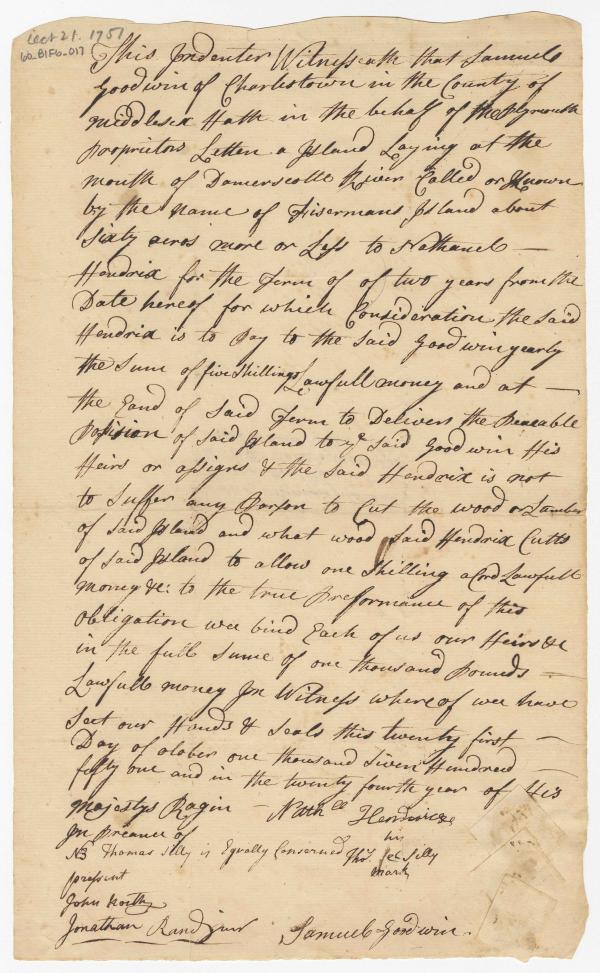 Oct 21. 1751
60_B1F6_017
This Indenter Witnesseath that Samuel
Goodwin of Charlestown in the County of
Middlesex Hath in the behalf of the Plymouth
Proprietors Letten a Island Laying at the
mouth of Damerscotte River Called or Known
by the Name of Fisermans Island about
Sixty acros more or Less to Nathanel —
Hendrix for the Term of of two years from the
Date hereof for which Consideration the Said
Hendrix is to Pay to the Said Goodwin yearly
the Sum of five Shillings Lawfull money and at —
the Eand of Said Term to Deliver the Peacable
Possision of Said Island to ye Said Goodwin His
Heirs or assigns & the Said Hendrix is not
to Suffer any Parson to Cut the wood or Lamber
of Said Island and what wood Said Hendrix Cutts
of Said Island to allow one Shilling a Cord Lawfull
money &c: to the true Preformance of this
obligation wee bind Each of us our Heirs &c
in the full Sume of one thousand Pounds —
Lawfull money In Witness where of wee have
Sect our Hands & Seals this twenty first —
Day of otober one thousand Siven Hundred
fifty one and in the twenty fourth year of His
Majestys Ragin — Nathll Hendrixe
In Preance of his
NB Thomas Silly is Equally Concerned Thos Silly
present mark
John North
Jonathan Rand Junr Samuel Goodwin